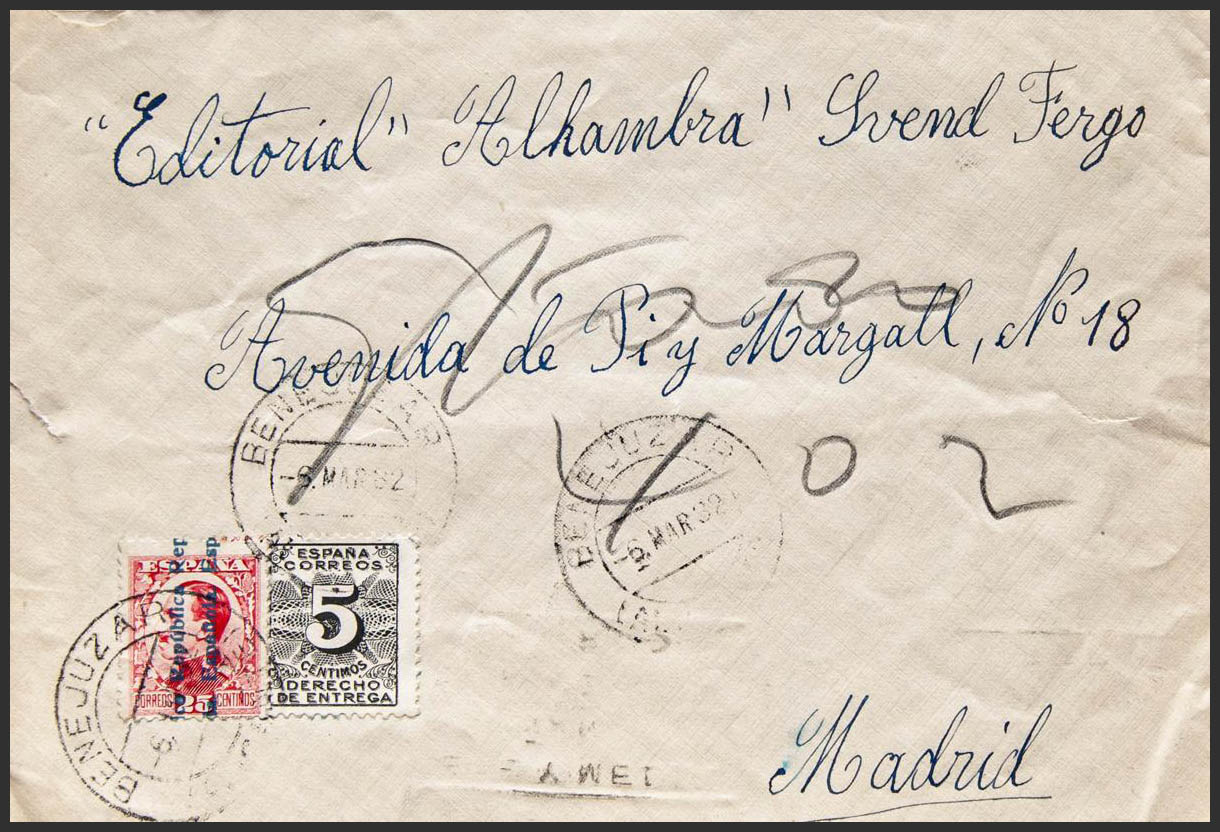 "Editorial" Alhambra" Svend Fergo
Avenida de Pi y Margall, Nº 18
402
BENEJUZAR
6. MAR 32
BENEJUZAR
6 MAR 32
ESPAÑA
CORREOS
5
CENTIMOS
DERECHO
DE ENTREGA
ESPAÑA
República Rep
Española Esp
CORREOS 25 CENTIMOS
BENEJUZAR
Madrid